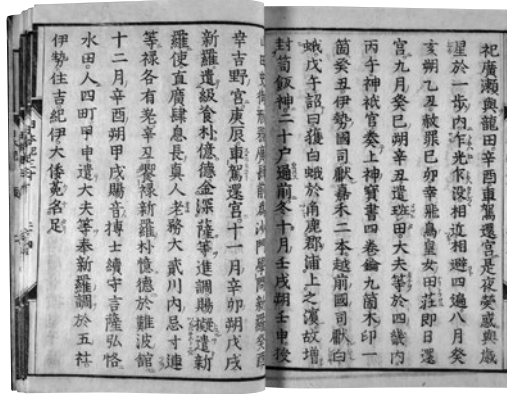 祀廣瀬與龍田辛酉車駕還宮是夜熒惑與歳
星於一歩内乍光乍没相近相避四遍八月癸
亥朔乙丑赦罪己卯幸飛鳥皇女田莊即日還
宮九月癸巳朔辛丑遣班田大夫等於四畿内
丙午神祇官奏上神寶書四卷鑰九箇木印一
箇癸丑伊勢國司獻嘉禾二本越前國司獻白
蛾戊午詔曰獲白蛾於角鹿郡浦上之濱故増
封笥飯神二十戸通前冬十月壬戌朔壬申授
山田史御形務廣肆前為沙門學問新羅癸酉
幸吉野宮庚辰車駕還宮十一月辛卯朔戊戌
新羅遣級飡朴憶德金深薩等進調賜擬遣新
羅使直廣肆息長真人老務大貳川内忌寸連
等禄各有差辛丑饗禄新羅朴憶德於難波館
十二月辛酉朔甲戌賜音博士續守言薩弘恪
水田人四町甲申遣大夫等奉新羅調於五社
伊勢住吉紀伊大倭菟名足